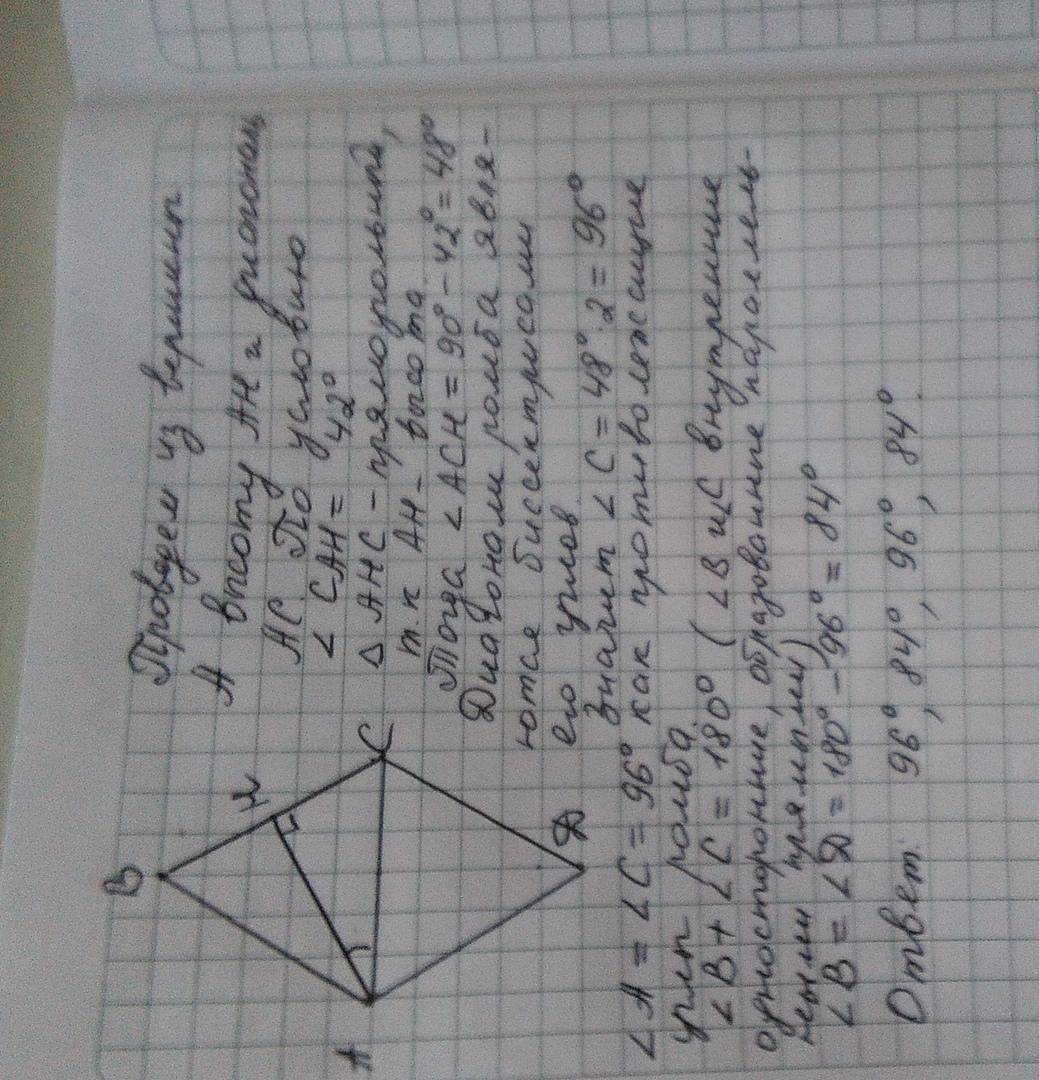 B
H
A
C
D
Проведем из вершины
A высоту AH и диагональ
AC. По условию
∠CAH = 42°
△AHC - прямоугольный,
т.к AH - высота.
Тогда ∠ACH = 90° - 42° = 48°
Диагонали ромба явля-
ются биссектрисами
его углов.
Значит ∠C = 48°·2 = 96°
∠A = ∠C = 96° как противолежащие
углы ромба.
∠B + ∠C = 180° (∠B и ∠C внутренние
односторонние, образованные параллель-
ными прямыми)
∠B = ∠D = 180° - 96° = 84°
Ответ: 96°, 84°, 96°, 84°.